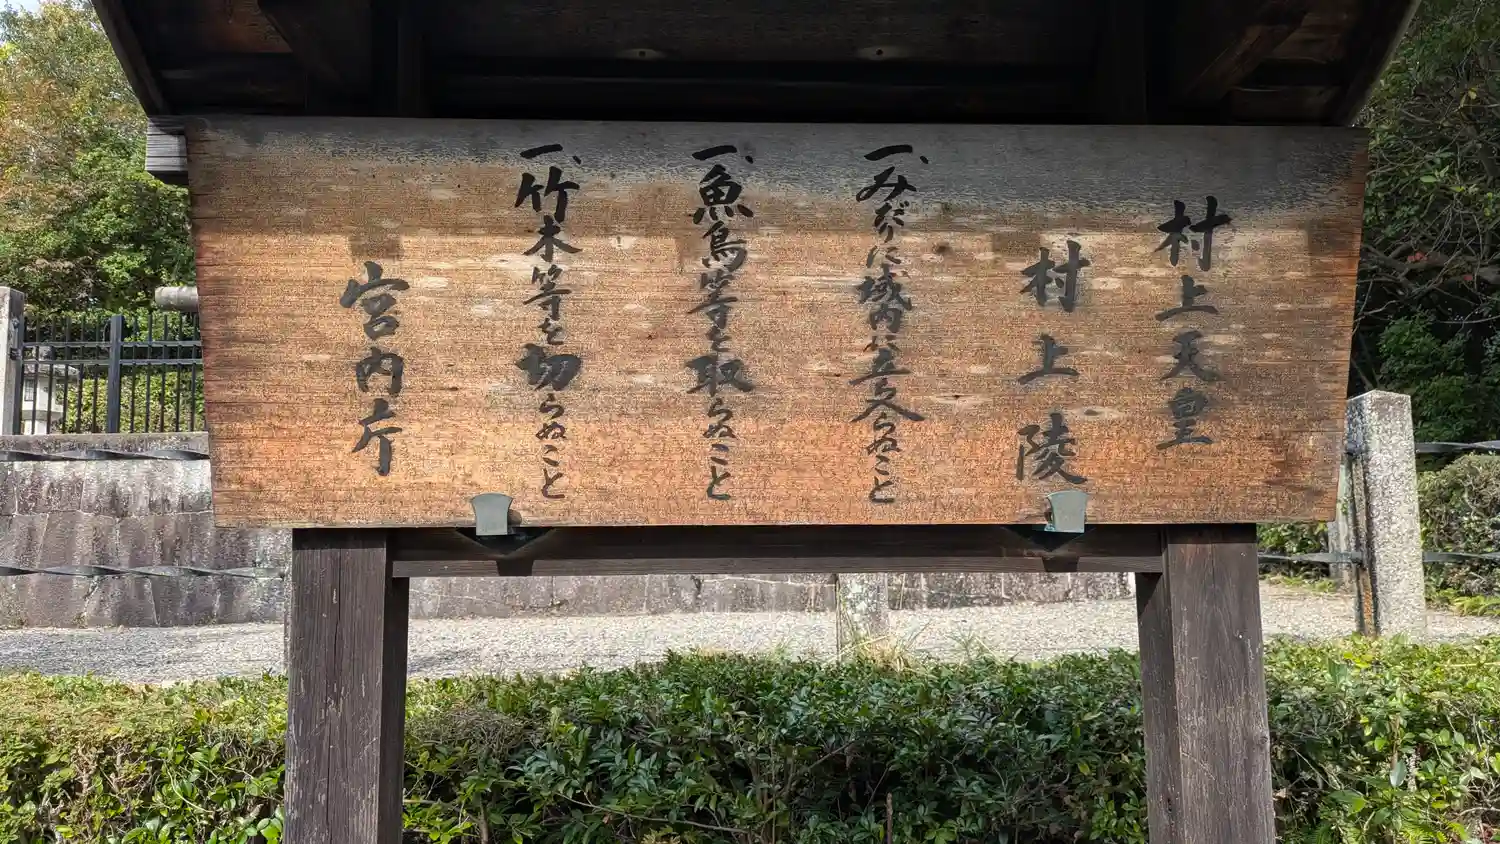 村上天皇
村上陵
一、みだりに域内に立入らぬこと
一、魚鳥等を取らぬこと
一、竹木等を切らぬこと
宮内庁